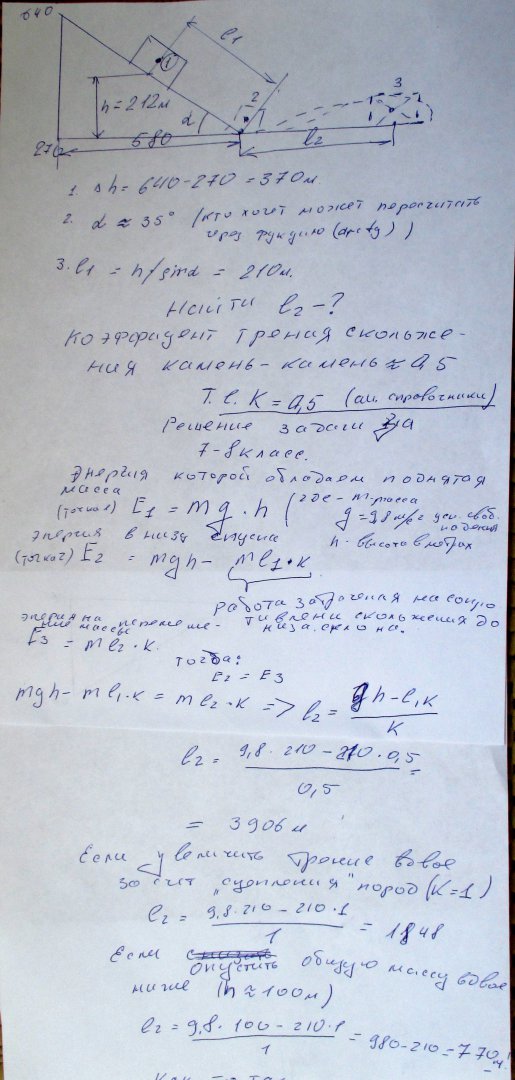 640
l1
1
h=212м
2
3
α
270
580
l2
1. Δh = 640-270 = 370м
2. α ≈ 35° (кто хочет может пересчитать
через функцию (arctg))
3. l1 = h/sinα = 210м.
Найти l2 - ?
Коэффидент трения скольже-
ния камень-камень ≈ 0,5
Т.е. K = 0,5 (см. справочники)
Решение задачи за
7-8 класс.
Энергия которой обладает поднятая
масса
(точка 1) E1 = mg·h (где - m. масса
g = 9,8 м/с уск. своб.
падения
h - высота в метрах
энергия внизу спуска
(точка 2) E2 = mgh - ml1·к
работа затраченая на сопро-
тивлени скольжения до
низа склона.
энергия на перемеще-
ние массы
E3 = ml2·к.
тогда:
E2 = E3
mgh - ml1·к = ml2·к => l2 = gh-l1к / к
l2 = 9,8·210 - 210·0,5 / 0,5 =
= 3906 м
Если увеличить трение вдвое
за счет "сцепления" пород (K=1)
l2 = 9,8·210 - 210·1 / 1 = 1848
Если опустить общую массу вдвое
ниже (h ≈ 100м)
l2 = 9,8·100 - 210·1 / 1 = 980-210 = 770м!